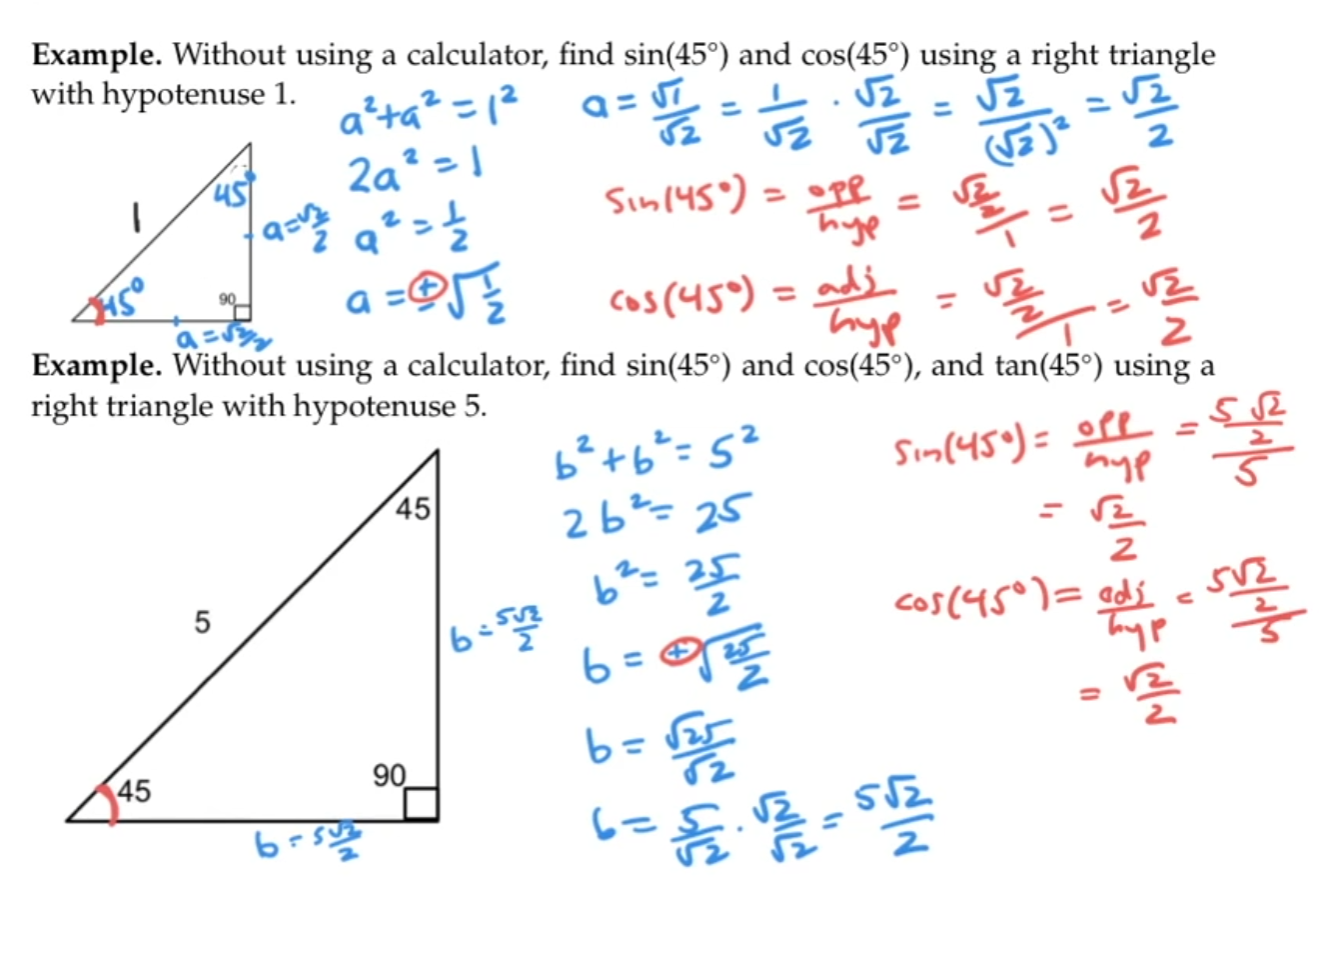 Example. Without using a calculator, find sin(45°) and cos(45°) using a right triangle
with hypotenuse 1.
a²+a² = 1²
2a² = 1
a² = 1/2
a = ±√(1/2)
a = √1/√2 = 1/√2 · √2/√2 = √2/(√2)² = √2/2
sin(45°) = opp/hyp = (√2/2)/1 = √2/2
cos(45°) = adj/hyp = (√2/2)/1 = √2/2
1
45
a=√2/2
45°
90
a=√2/2
Example. Without using a calculator, find sin(45°) and cos(45°), and tan(45°) using a
right triangle with hypotenuse 5.
45
5
b=5√2/2
45
90
b=5√2/2
b²+b²=5²
2b²=25
b²=25/2
b=±√(25/2)
b=√25/√2
b=5/√2 · √2/√2 = 5√2/2
sin(45°) = opp/hyp = (5√2/2)/5
= √2/2
cos(45°) = adj/hyp = (5√2/2)/5
= √2/2